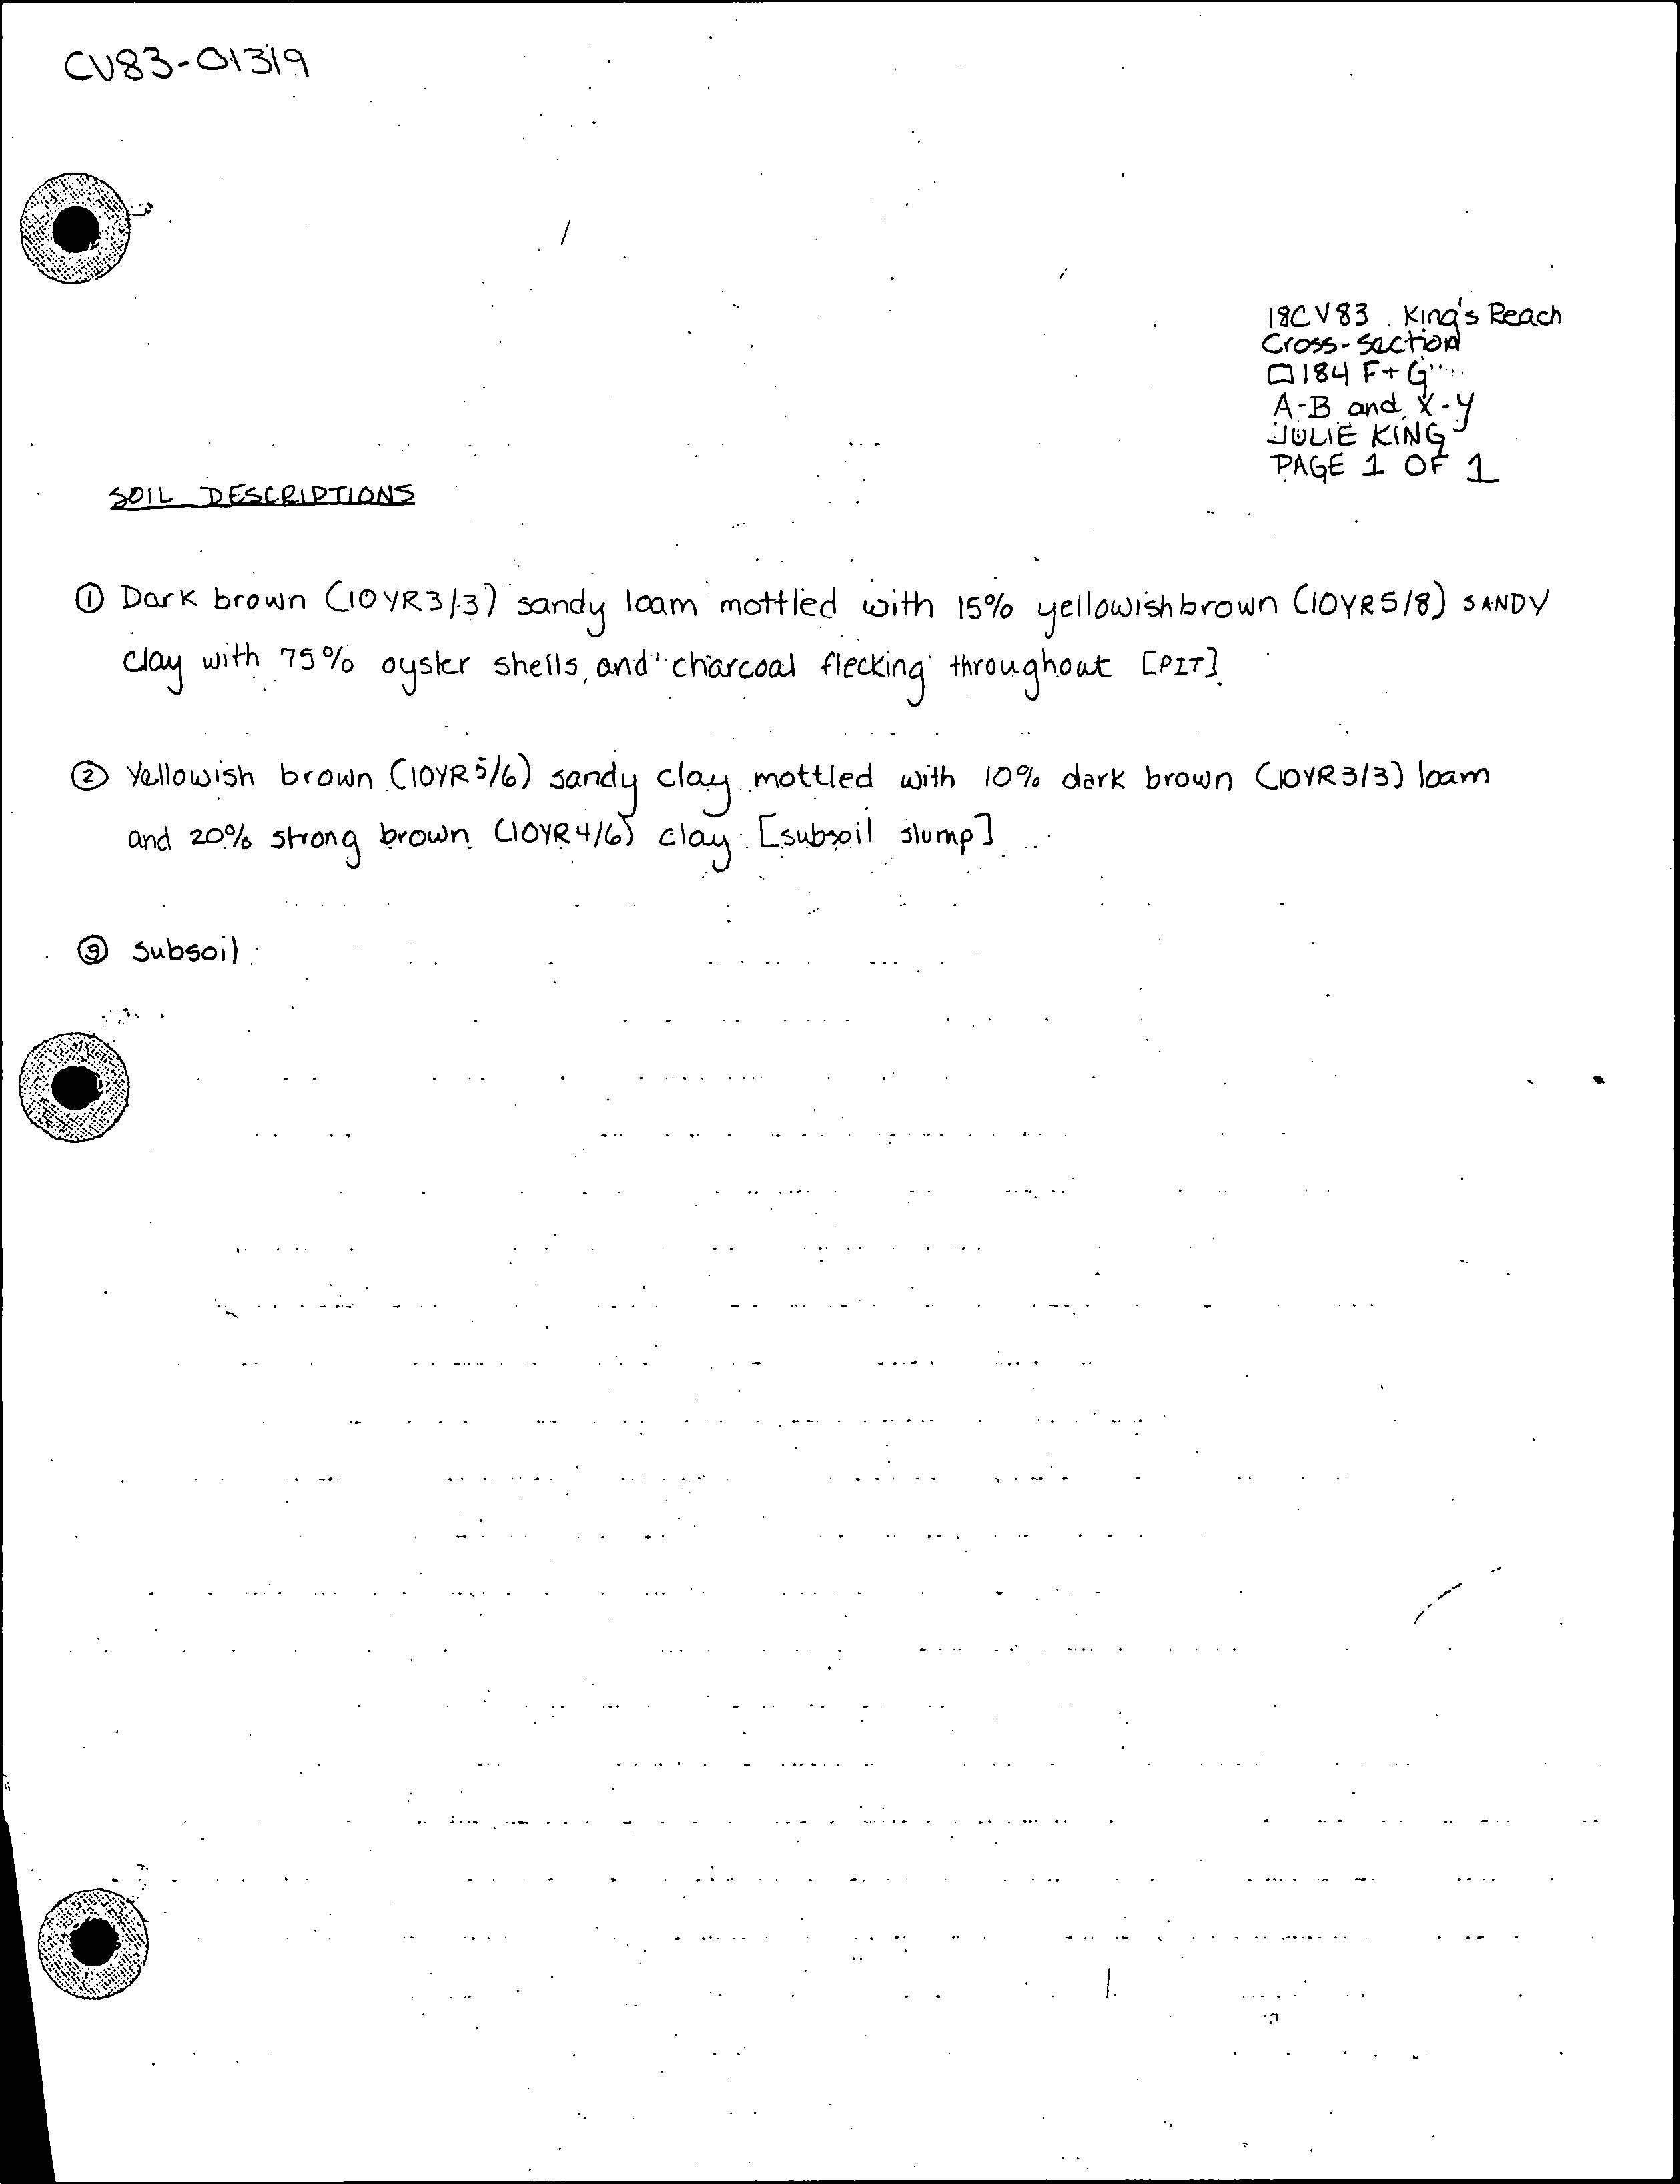 CV83-01319
18CV83 King's Reach
Cross-section
□184 F+G
A-B and X-Y
JULIE KING
PAGE 1 OF 1
SOIL DESCRIPTIONS
① Dark brown (10YR3/3) sandy loam mottled with 15% yellowish brown (10YR5/8) SANDY
clay with 75% oyster shells, and charcoal flecking throughout [PIT].
② Yellowish brown (10YR5/6) sandy clay mottled with 10% dark brown (10YR3/3) loam
and 20% strong brown (10YR4/6) clay [subsoil slump]
③ Subsoil